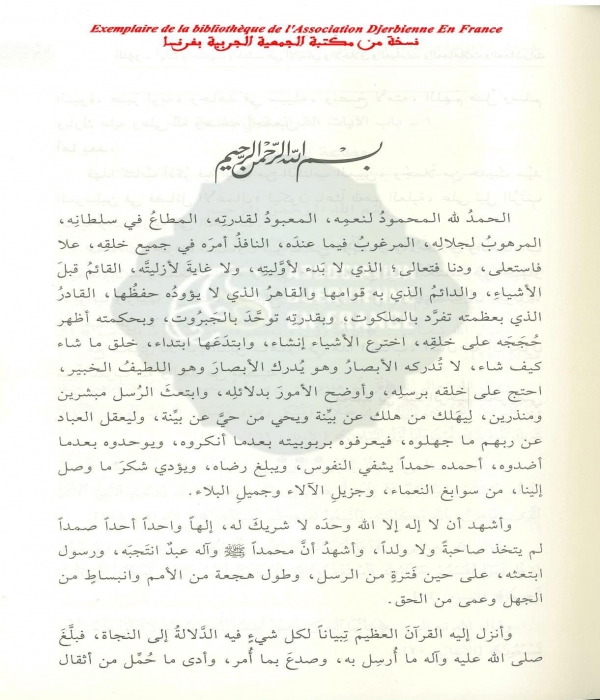 Exemplaire de la bibliothèque de l'Association Djerbienne En France
نسخة من مكتبة الجمعية الجربية بفرنسا
بسم الله الرحمن الرحيم
الحمدُ لله المحمودُ لنعمِه، المعبودُ لقدرتِه، المطاعُ في سلطانِه،
المرهوبُ لجلالِه، المرغوبُ فيما عندَه، النافذُ أمرَه في جميع خلقِه، علا
فاستعلى، ودنا فتعالى؛ الذي لا بَدء لأوَّليتِه، ولا غايةَ لأزليَّتِه، القائمُ قبلَ
الأشياءِ، والدائمُ الذي به قوامها والقاهرُ الذي لا يؤودُه حفظُها، القادرُ
الذي بعظمتِه تفرَّد بالملكوت، وبقدرتِه توحَّدَ بالجبروت، وبحكمته أظهر
حُجَجَه على خلقِه، اخترع الأشياء إنشاء، وابتدَعَها ابتداء، خلق ما شاء
كيف شاء، لا تُدركه الأبصارُ وهو يُدرك الأبصارَ وهو اللطيفُ الخبير،
احتج على خلقه برسلِه، وأوضح الأمورَ بدلائلِه، وابتعثَ الرُسل مبشرين
ومنذرين، ليهَلك من هلك عن بيِّنة ويحي من حيَّ عن بيِّنة، وليعقل العباد
عن ربهم ما جهلوه، فيعرفوه بربوبيته بعدما أنكروه، ويوحدوه بعدما
أضدوه، أحمده حمداً يشفي النفوس، ويبلغ رضاه، ويؤدي شكرَ ما وصل
إلينا، من سوابغ النعماء، وجزيلِ الآلاء وجميلِ البلاء.
وأشهد أن لا إله إلا الله وحدَه لا شريكَ له، إلهاً واحداً أحداً صمداً
لم يتخذ صاحبةً ولا ولداً، وأشهدُ أنَّ محمداً ﷺ وآله عبدٌ انتَجبَه، ورسول
ابتعثه، على حين فَترةٍ من الرسل، وطول هجعة من الأمم وانبساطٍ من
الجهل وعمى من الحق.
وأنزل إليه القرآنَ العظيمَ تِبياناً لكل شيءٍ فيه الدَّلالة إلى النجاة، فبلَّغَ
صلى الله عليه وآله ما أُرسِل به، وصدعَ بما أُمر، وأدى ما حُمِّل من أثقال